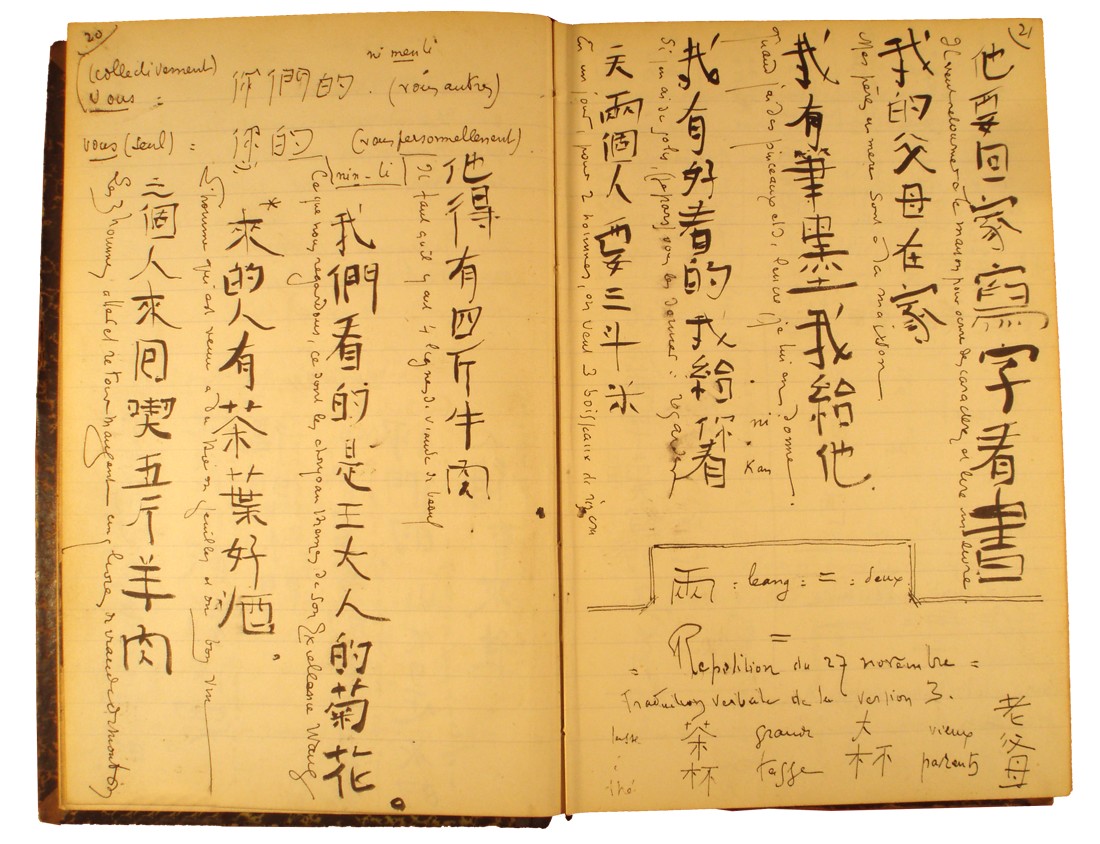 20
(collectivement)
Vous =
你們的.
ni men li
(vous autres)
vous (seul) =
你的
(vous personnellement)
nin-li
他得有四斤牛肉
Il faut qu'il y ait 4 livres viande de boeuf
我們看的是王大人的菊花
Ce que nous regardons, ce sont les chrysanthèmes de son Excellence Wang
*來的人有茶葉好酒
L'homme qui est venu a du thé en feuilles et du bon vin
三個人來回喫五斤羊肉
Les 3 hommes, aller et retour mangent cinq livres de viande de mouton
21
他要回家寫字看書
Il veut retourner à la maison pour écrire des caractères et lire un livre
我的父母在家
Mes père et mère sont à la maison
我有筆墨我給他.
Quand j'ai des pinceaux et de l'encre je lui en donne.
我有好看的我給你看
Si j'en ai de jolis, je pars vous les donner à regarder
ni
Kan
天兩個人要三斗米
En un jour, pour 2 hommes, on veut 3 boisseaux de riz
兩 = leang = deux
Repetition du 27 novembre =
Traduction verbale de la version 3.
老父母
vieux
parents
大杯
grande
tasse
茶杯
tasse
à
thé